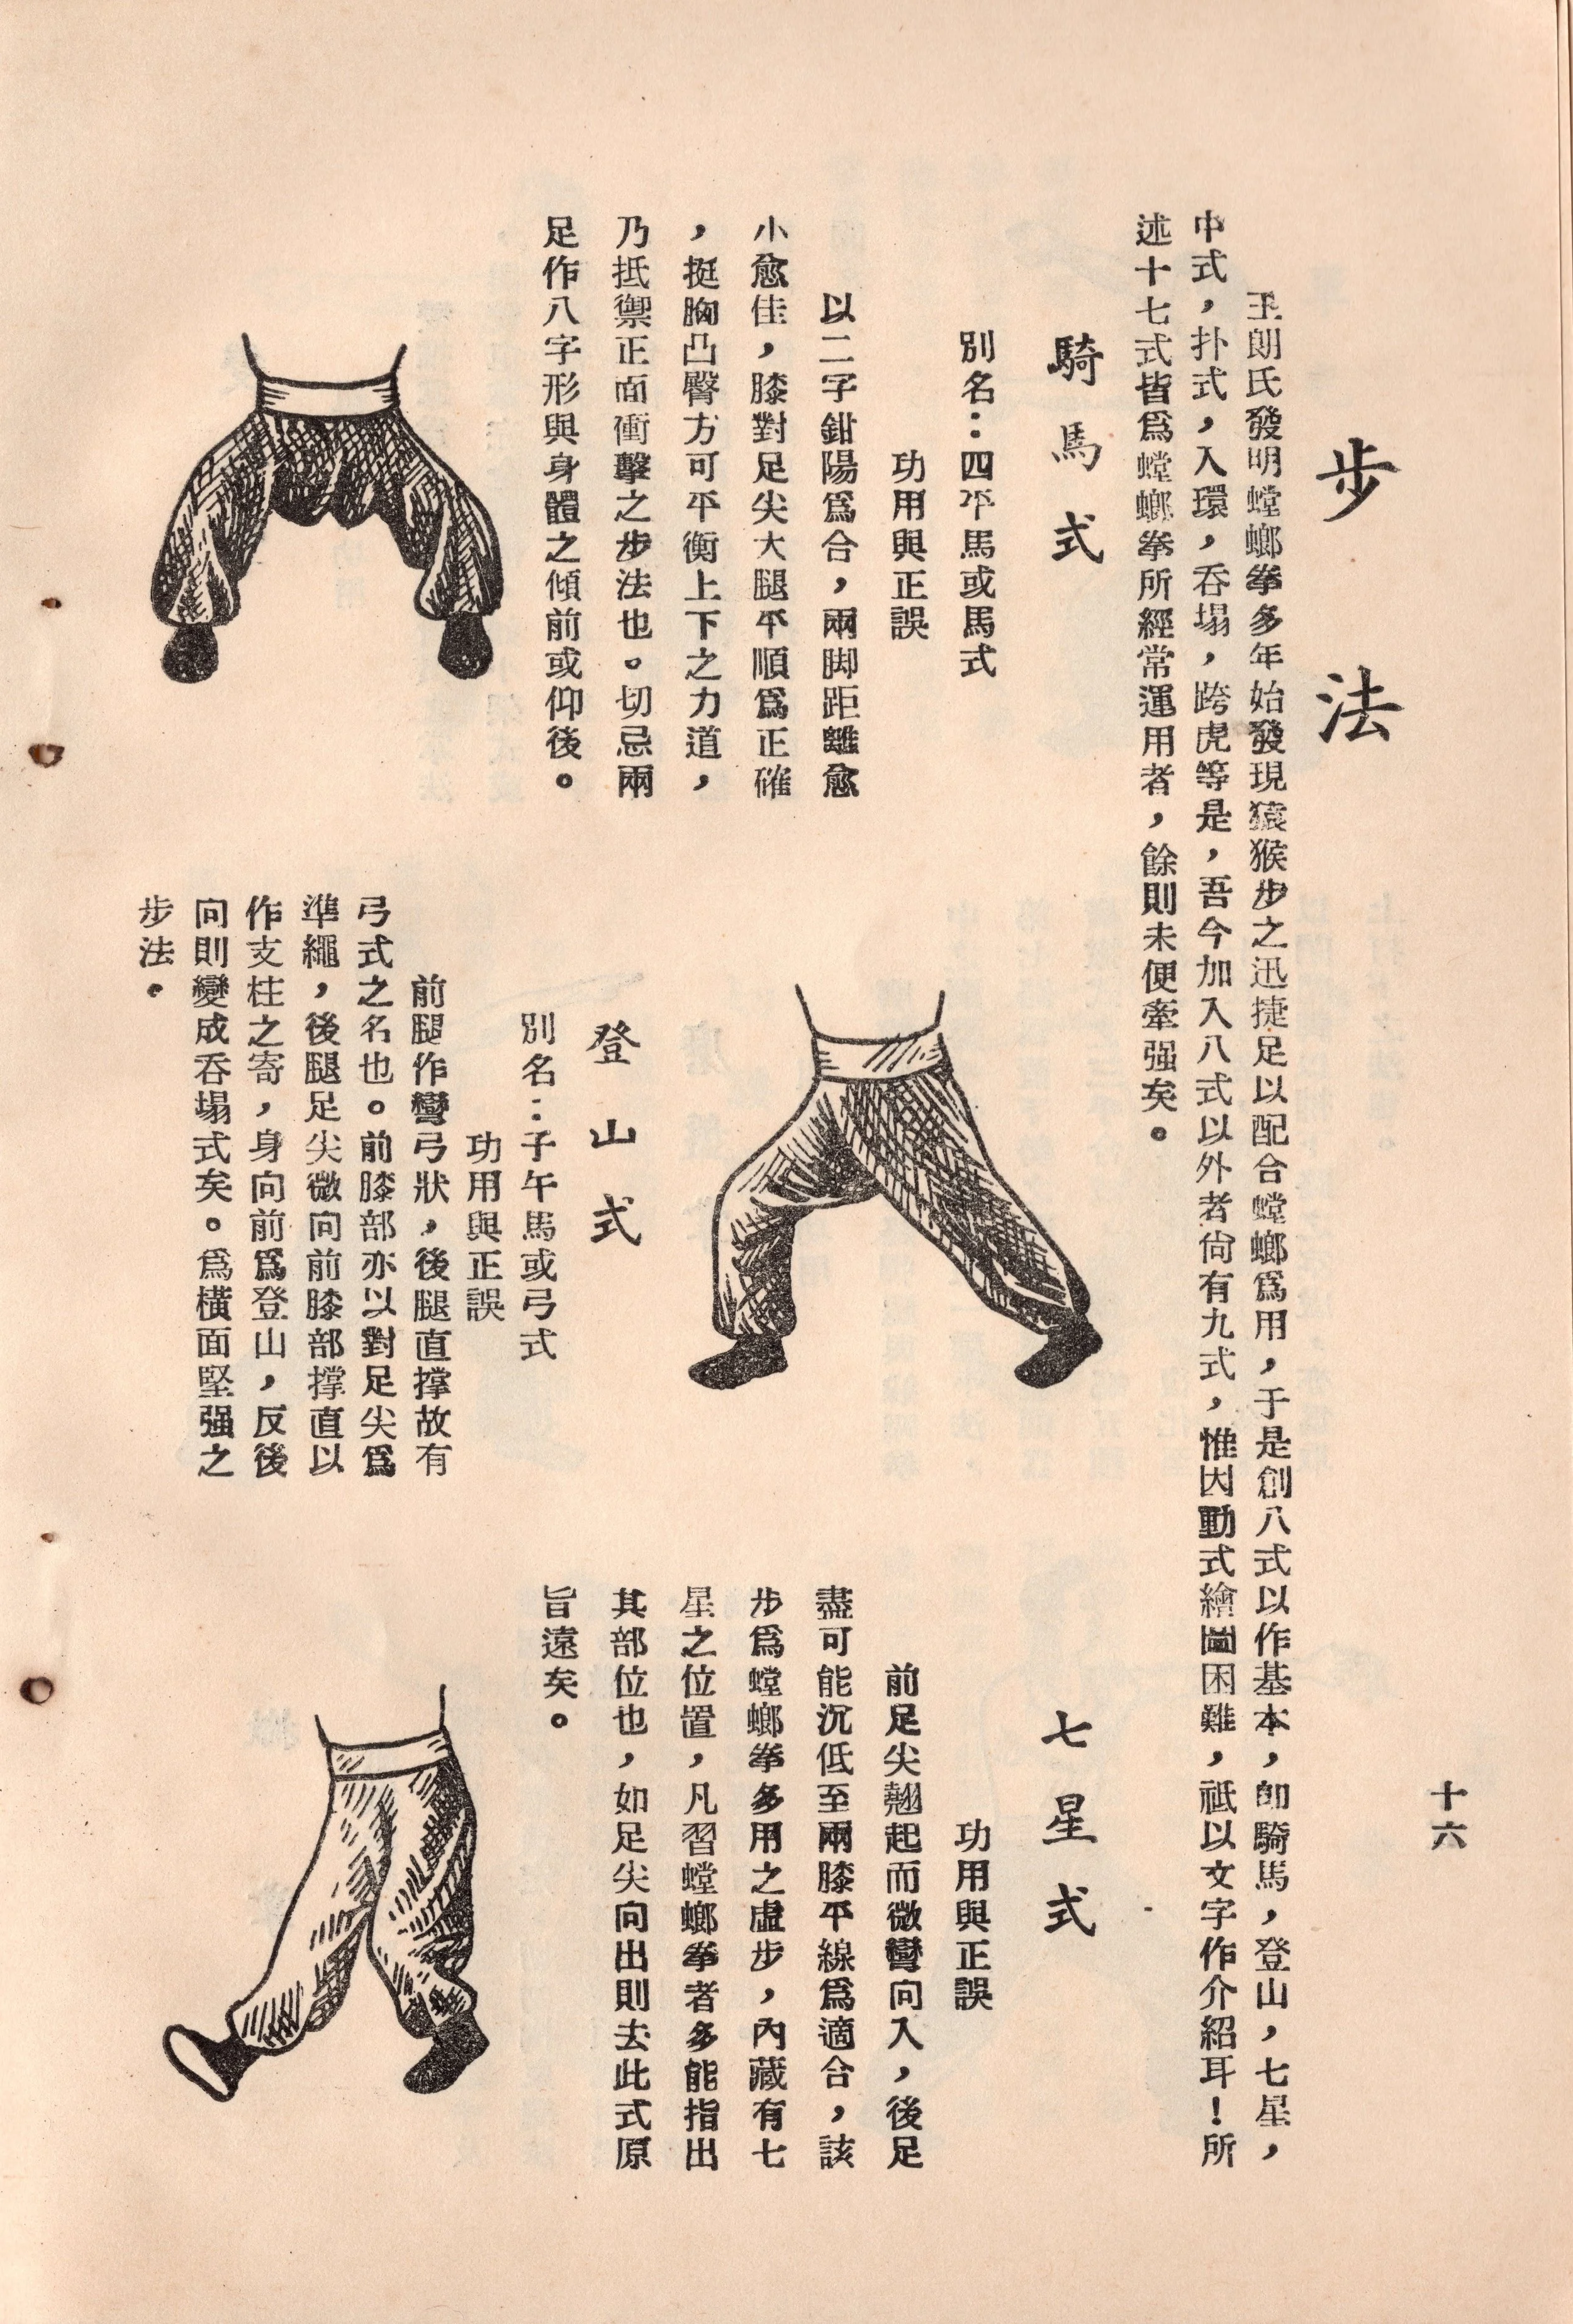 十六
步法
王朗氏發明螳螂拳多年始發現猿猴步之迅捷足以配合螳螂爲用，于是創八式以作基本，卽騎馬，登山，七星，
中式，扑式，入環，吞塌，跨虎等是，吾今加入八式以外者尙有九式，惟因動式繪圖困難，祗以文字作介紹耳！所
述十七式皆爲螳螂拳所經常運用者，餘則未便牽强矣。
騎馬式
別名：四平馬或馬式
功用與正誤
以二字鉗陽爲合，兩脚距離愈
小愈佳，膝對足尖大腿平順爲正確
，挺胸凸臀方可平衡上下之力道，
乃抵禦正面衝擊之步法也。切忌兩
足作八字形與身體之傾前或仰後。
登山式
別名：子午馬或弓式
功用與正誤
前腿作彎弓狀，後腿直撑故有
弓式之名也。前膝部亦以對足尖爲
準繩，後腿足尖微向前膝部撑直以
作支柱之寄，身向前爲登山，反後
向則變成吞塌式矣。爲橫面堅强之
步法。
七星式
功用與正誤
前足尖翹起而微彎向入，後足
盡可能沉低至兩膝平線爲適合，該
步爲螳螂拳多用之虛步，內藏有七
星之位置，凡習螳螂拳者多能指出
其部位也，如足尖向出則去此式原
旨遠矣。